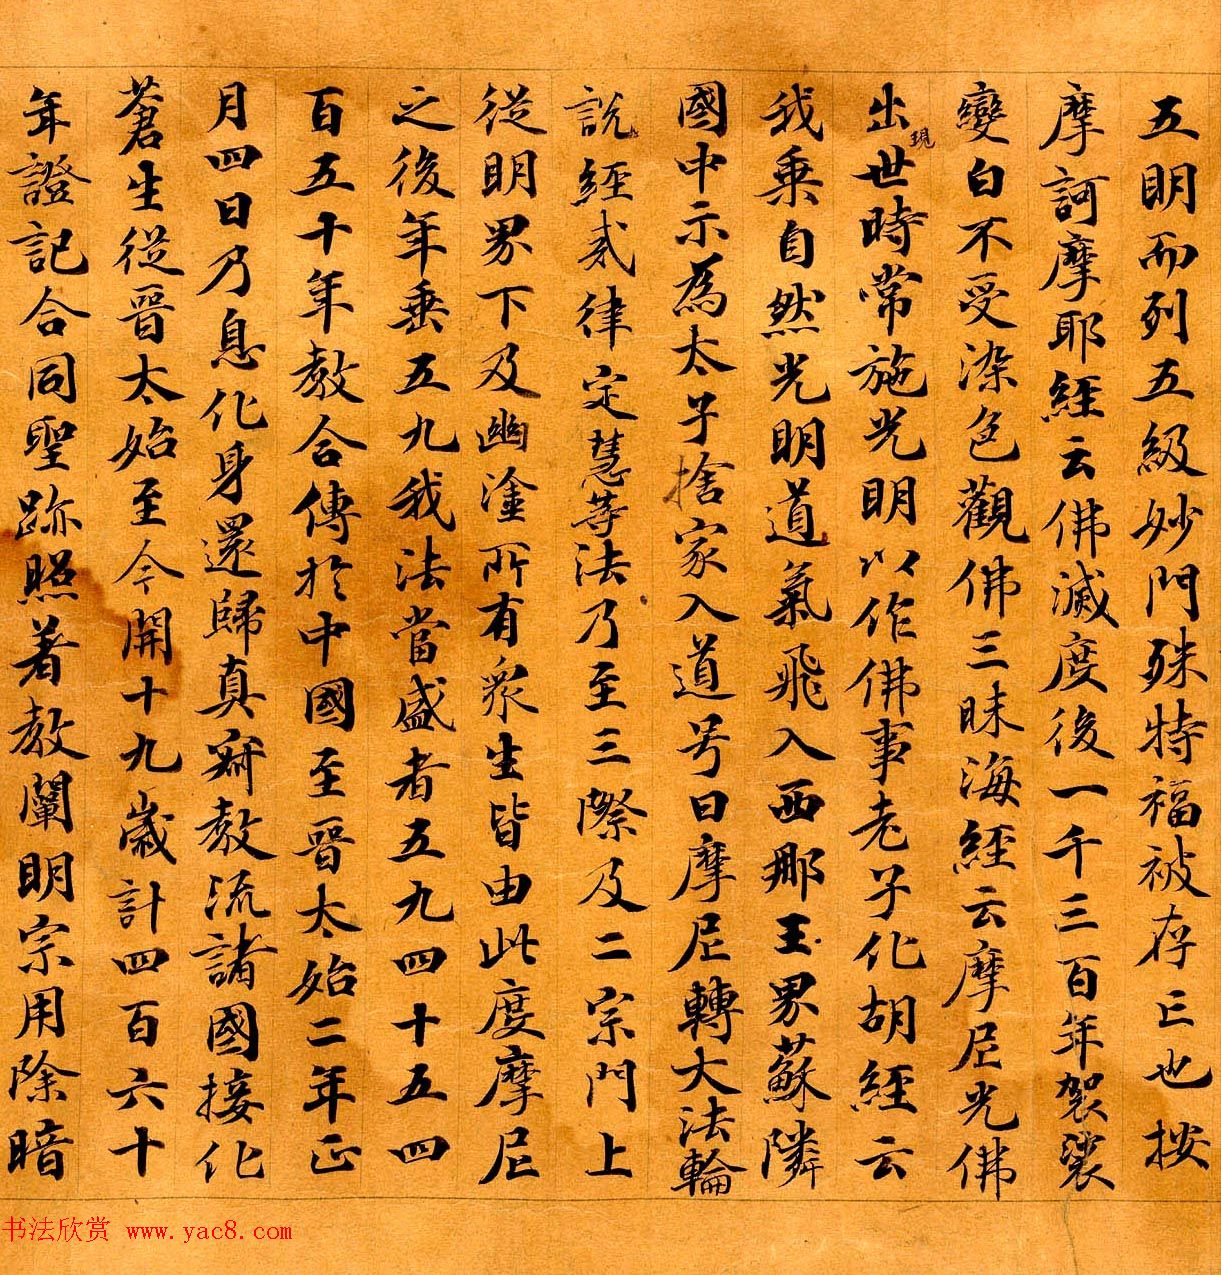 五明而列五級妙門殊特福被存亡也按
摩訶摩耶經云佛滅度後一千三百年袈裟
變白不受染色觀佛三昧海經云摩尼光佛
出現世時常施光明以作佛事老子化胡經云
我乘自然光明道氣飛入西那玉界蘇隣
國中示為太子捨家入道号曰摩尼轉大法輪
說經戒律定慧等法乃至三際及二宗門上
從明界下及幽塗所有衆生皆由此度摩尼
之後年垂五九我法當盛者五九四十五四
百五十年教合傳於中國至晉太始二年正
月四日乃息化身還歸真寂教流諸國接化
蒼生從晉太始至今開十九歲計四百六十
年證記合同聖跡照著教闡明宗用除暗
书法欣赏 www.yac8.com